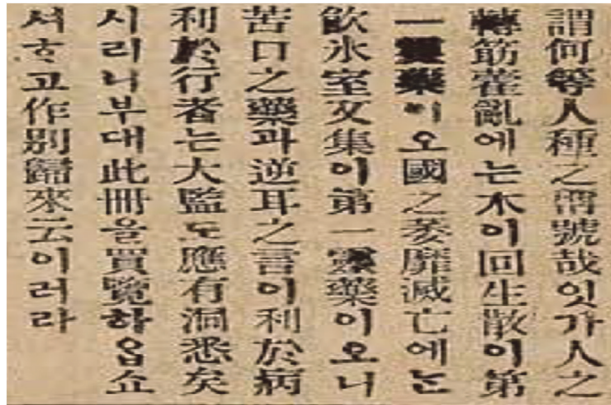 謂何等人種之謂號哉잇가人之
轉筋藿亂에는木이回生散이第
一靈藥이오國之萎靡滅亡에는
飮氷室文集이第一靈藥이오니
苦口之藥과逆耳之言이利於病
利於行者는大監도應有洞悉矣
시리니부대此冊을買覽하옵쇼
셔ᄒᆞ고作別歸來云이러라